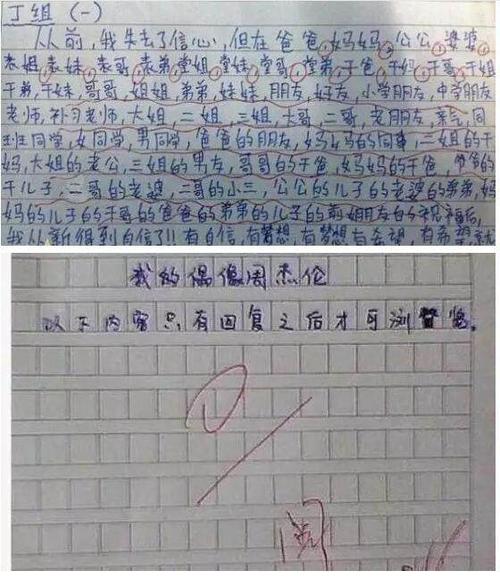 丁组（一）
从前,我失去了信心,但在爸爸,妈妈,公公,婆婆,
表姐,表妹,表哥,表弟,堂姐,堂妹,堂哥,堂弟,干爸,干妈,干哥,干姐
干弟,干妹,哥哥,姐姐,弟弟,妹妹,朋友,好友,小学朋友,中学朋友
老师,补习老师,大姐,二姐,三姐,大哥,二哥,老朋友,亲戚,同
班同学,女同学,男同学,爸爸的朋友,妈妈的同事,二姐的干
妈,大姐的老公,三姐的男友,哥哥的干爸,妈妈的干爸,爸爸的
干儿子,二哥的老婆,二哥的小三,公公的儿子的老婆的弟弟,妈
妈的儿子的干哥的爸爸的弟弟的儿子的前女朋友的祝福后,
我从新得到自信了!!有自信,有梦想,有梦想有希望,有希望就
我的偶像周杰伦
以下内容只有回复之后才可浏览。
阅